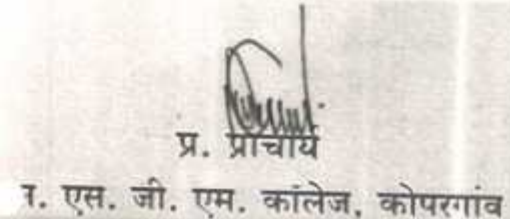 प्र. प्राचार्य
एस. जी. एम. कॉलेज, कोपरगांव